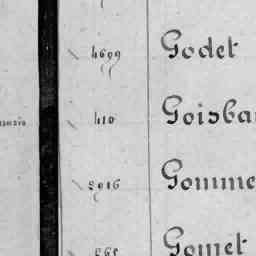 4699 Godet
410 Goisba
2916 Gomme
265 Gomet